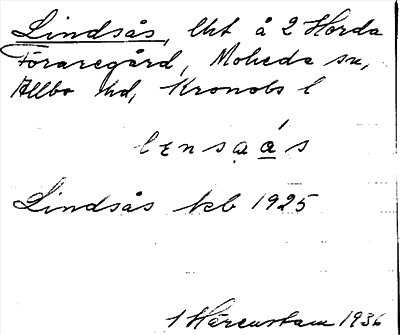 Lindsås, lht å 2 Horda
Föraregård, Moheda sn,
Allbo hd, Kronobs l
lɛnsa̤á̤s
Lindsås kcb 1925
Härenstam 1936